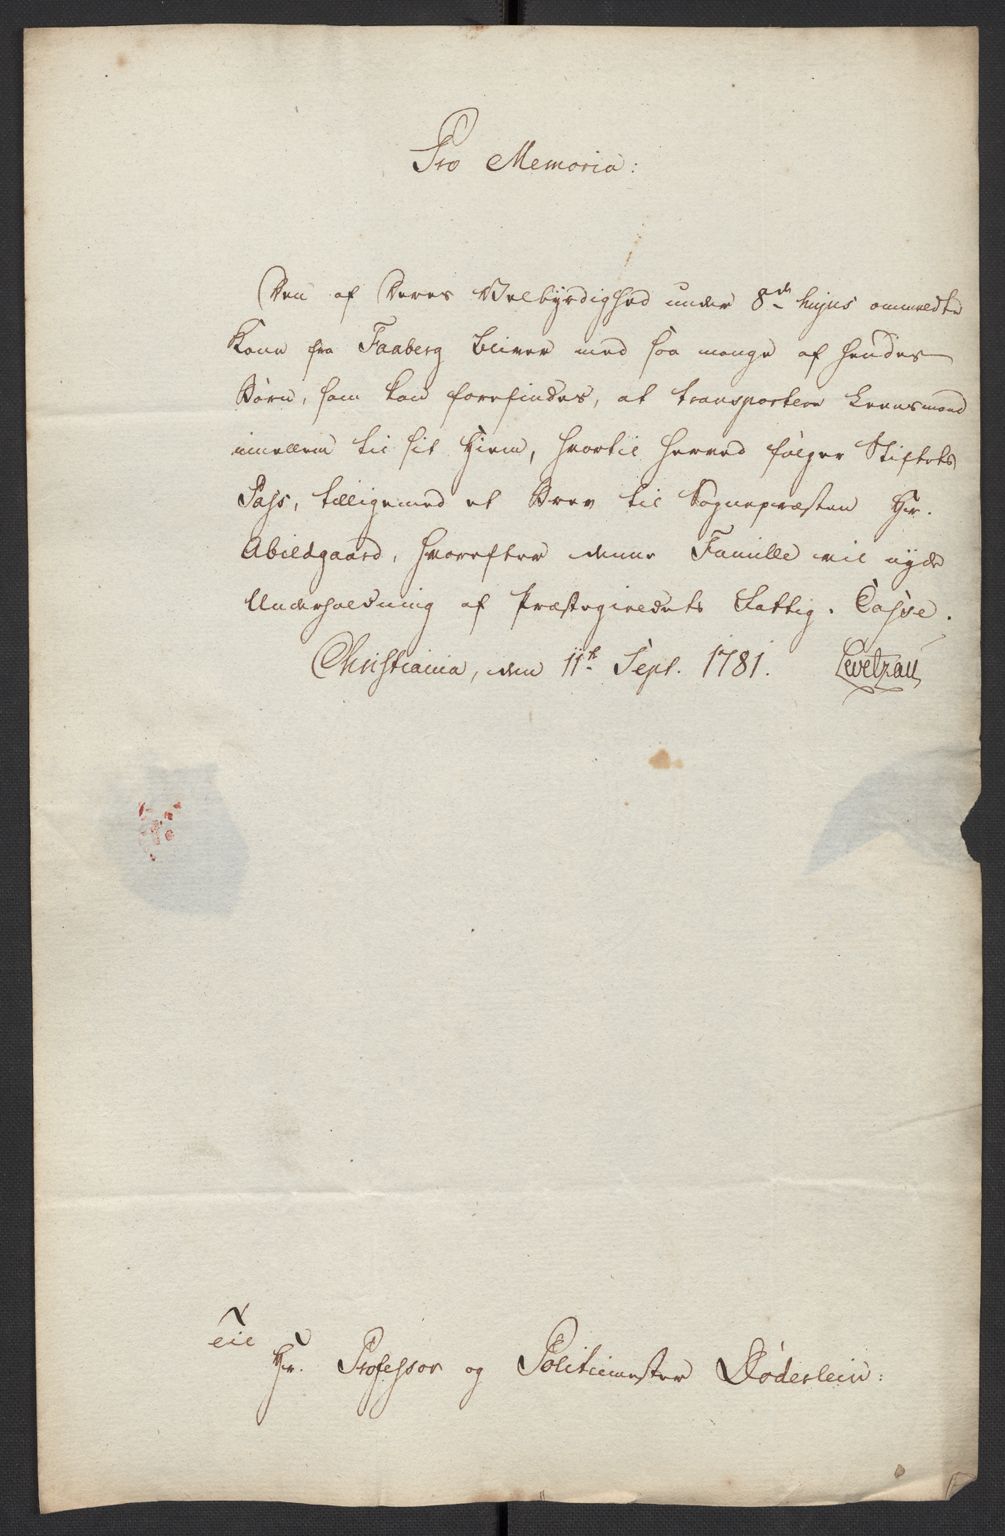 Pro Memoria:
Den af Deres Velbyrdighed under 8de hujus ommeldte
Kone fra Faaberg bliver med saa mange af hendes
Børn, som kan forefindes, at transportere Leensmænd
imellem til sit Hiem, hvortil herved følger Stiftets
Pass, tilligemed et Brev til Sognepræsten Hr.
Abildgaard, hvorefter denne Famille vil nyde
Underholdning af Præstegieldets Fattig-Casse.
Christiania, den 11te Sept. 1781. Levetzau
Til
Hr. Professor og Politiemester Døderlein: